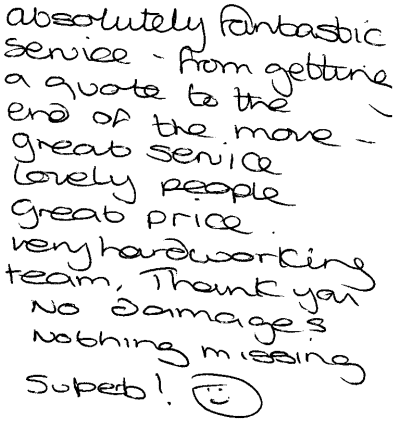 absolutely fantastic
service - from getting
a quote to the
end of the move -
great service
lovely people
great price.
very hardworking
team, Thank you
No damages
Nothing missing
Superb!